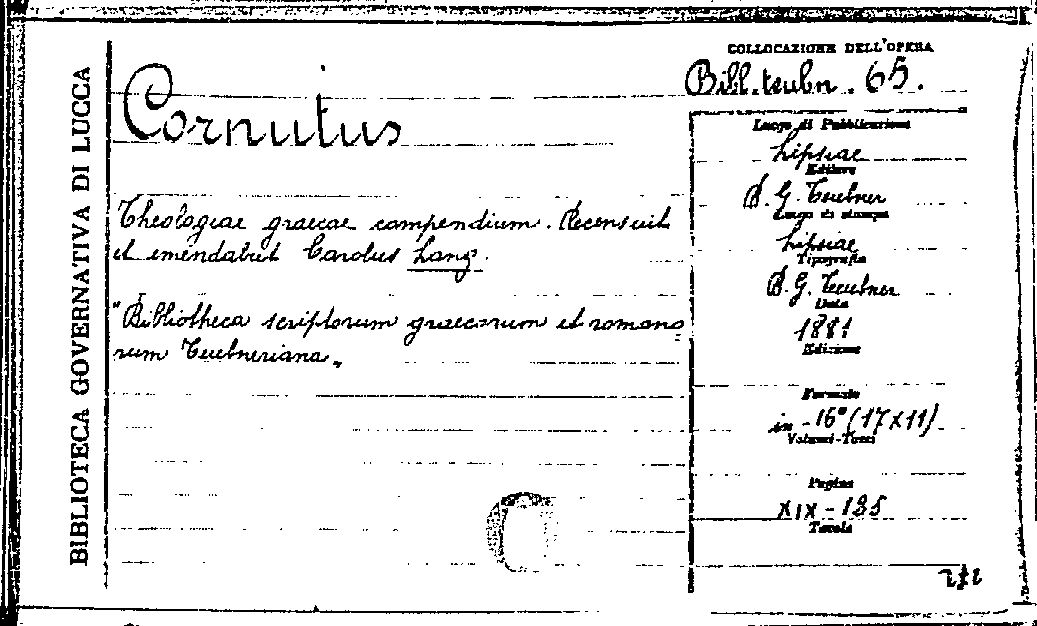 BIBLIOTECA GOVERNATIVA DI LUCCA
COLLOCAZIONE DELL'OPERA
Bibl. teubn. 65.
Cornutus
Theologiae graecae compendium. Recensuit
et emendabit Carolus Lang.
"Bibliotheca scriptorum graecorum et romano=
rum Teubneriana„
Luogo di Pubblicazione
Lipsiae
Editore
B. G. Teubner
Luogo di stampa
Lipsiae
Tipografia
B. G. Teubner
Data
1881
Edizione
Formato
in-16° (17x11)
Volumi-Tomi
Pagine
XIX-125
Tavole